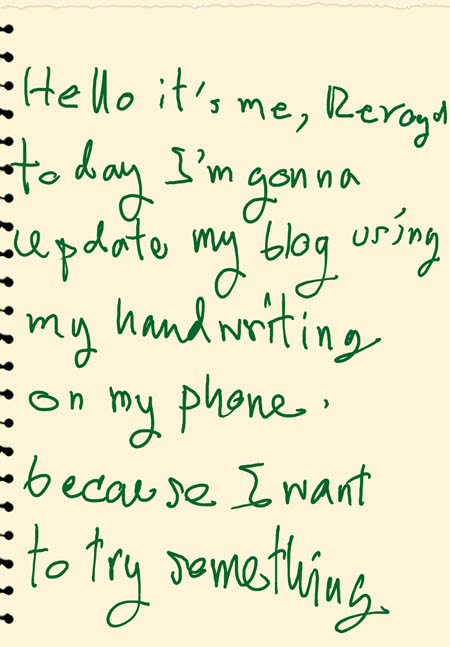 Hello it's me, Reroyd
to day I'm gonna
update my blog using
my handwriting
on my phone.
because I want
to try something